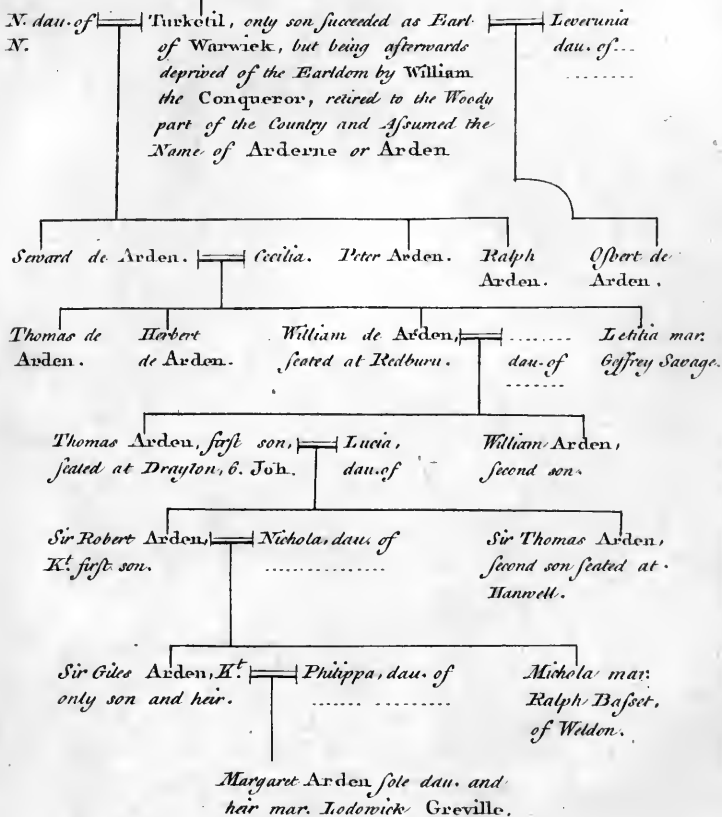 N. dau. of
N.
Turketil, only son ſucceeded as Earl
of Warwick, but being afterwards
deprived of the Earldom by William
the Conqueror, retired to the Woody
part of the Country and Aſsumed the
Name of Arderne or Arden
Leverunia
dau. of...
........
Seward de Arden.
Cecilia.
Peter Arden.
Ralph
Arden.
Oſbert de
Arden.
Thomas de
Arden.
Herbert
de Arden.
William de Arden,
ſeated at Redburn.
........
dau. of
........
Letitia mar.
Geffrey Savage.
Thomas Arden, firſt son,
ſeated at Drayton, 6. Joh.
Lucia,
dau. of
William Arden,
ſecond son.
Sir Robert Arden,
Kt. firſt son.
Nichola, dau. of
...............
Sir Thomas Arden,
ſecond son ſeated at
Hanwell.
Sir Giles Arden, Kt.
only son and heir.
Philippa, dau. of
...... ........
Michola mar.
Ralph Baſset,
of Weldon.
Margaret Arden ſole dau. and
heir mar. Lodowick Greville,